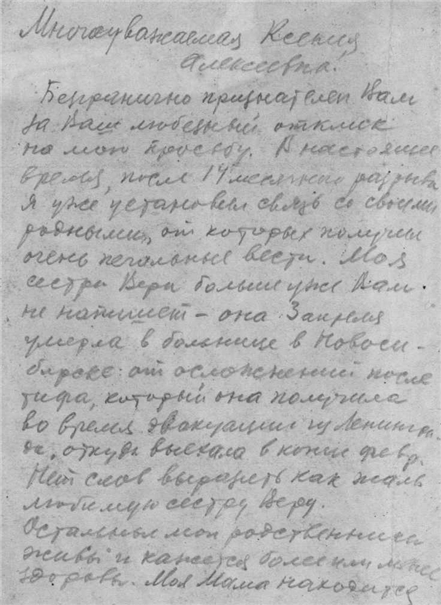 Многоуважаемая Ксения
Алексеевна!
Безгранично признателен Вам
за Ваш любезный отклик
на мою просьбу. В настоящее
время, после 14 месячного разрыва
я уже установил связь со своими
родными, от которых получил
очень печальные вести. Моя
сестра Вера больше уже Вам
не напишет – она 3 апреля
умерла в больнице в Новоси-
бирске от осложнений после
тифа, который она получила
во время эвакуации из Ленингра-
да, откуда выехала в конце февр.
Нет слов выразить как жаль
любимую сестру Веру.
Остальные мои родственники
живы и кажется более или менее
здоровы. Моя Мама находится